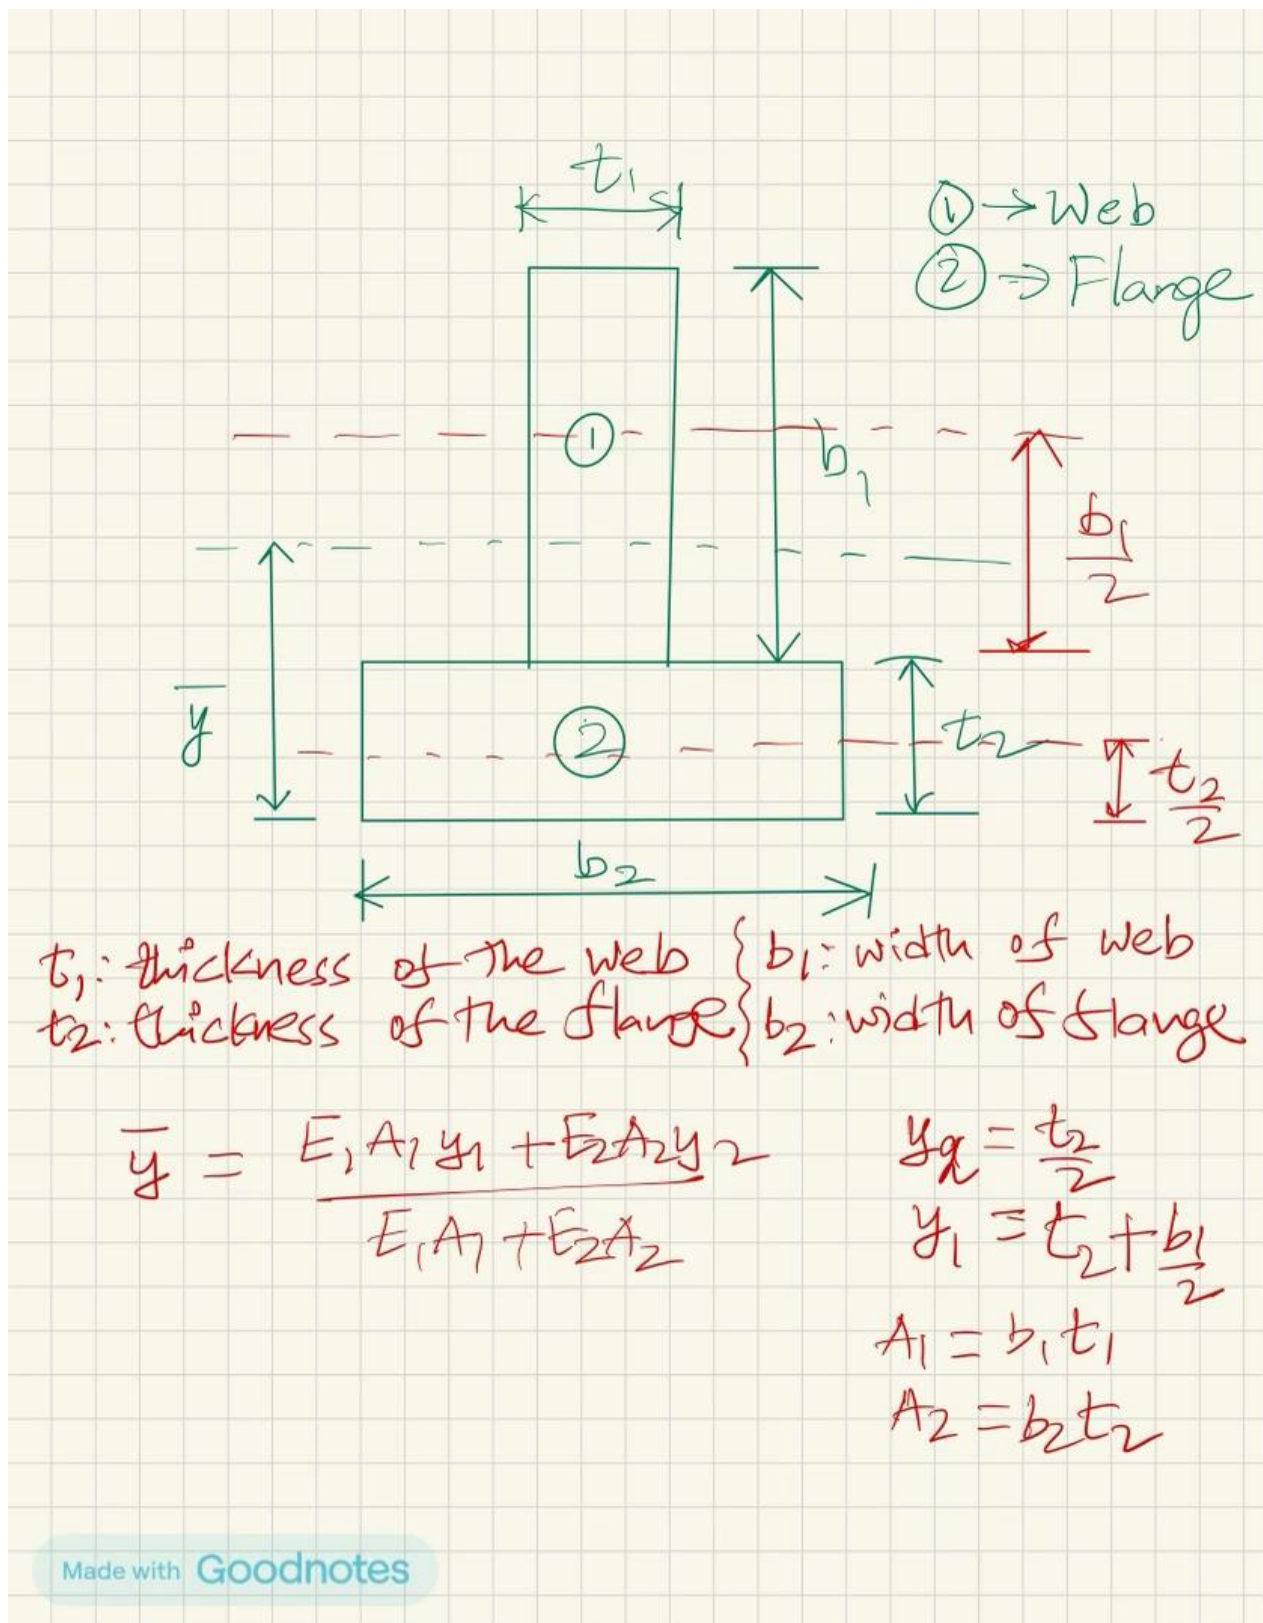 t₁
① → Web
② → Flange
①
b₁
b₁/2
y̅
②
t₂
t₂/2
b₂
t₁: thickness of the web { b₁: width of web
t₂: thickness of the flange { b₂: width of flange
y̅ = (E₁A₁y₁ + E₂A₂y₂) / (E₁A₁ + E₂A₂)
y₂ = t₂/2
y₁ = t₂ + b₁/2
A₁ = b₁t₁
A₂ = b₂t₂
Made with Goodnotes